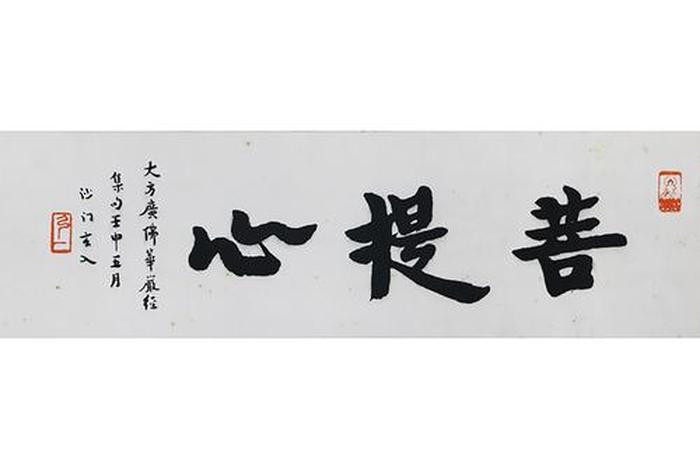 菩提心
大方廣佛華嚴經
集句壬申五月
沙门玄入
弘一